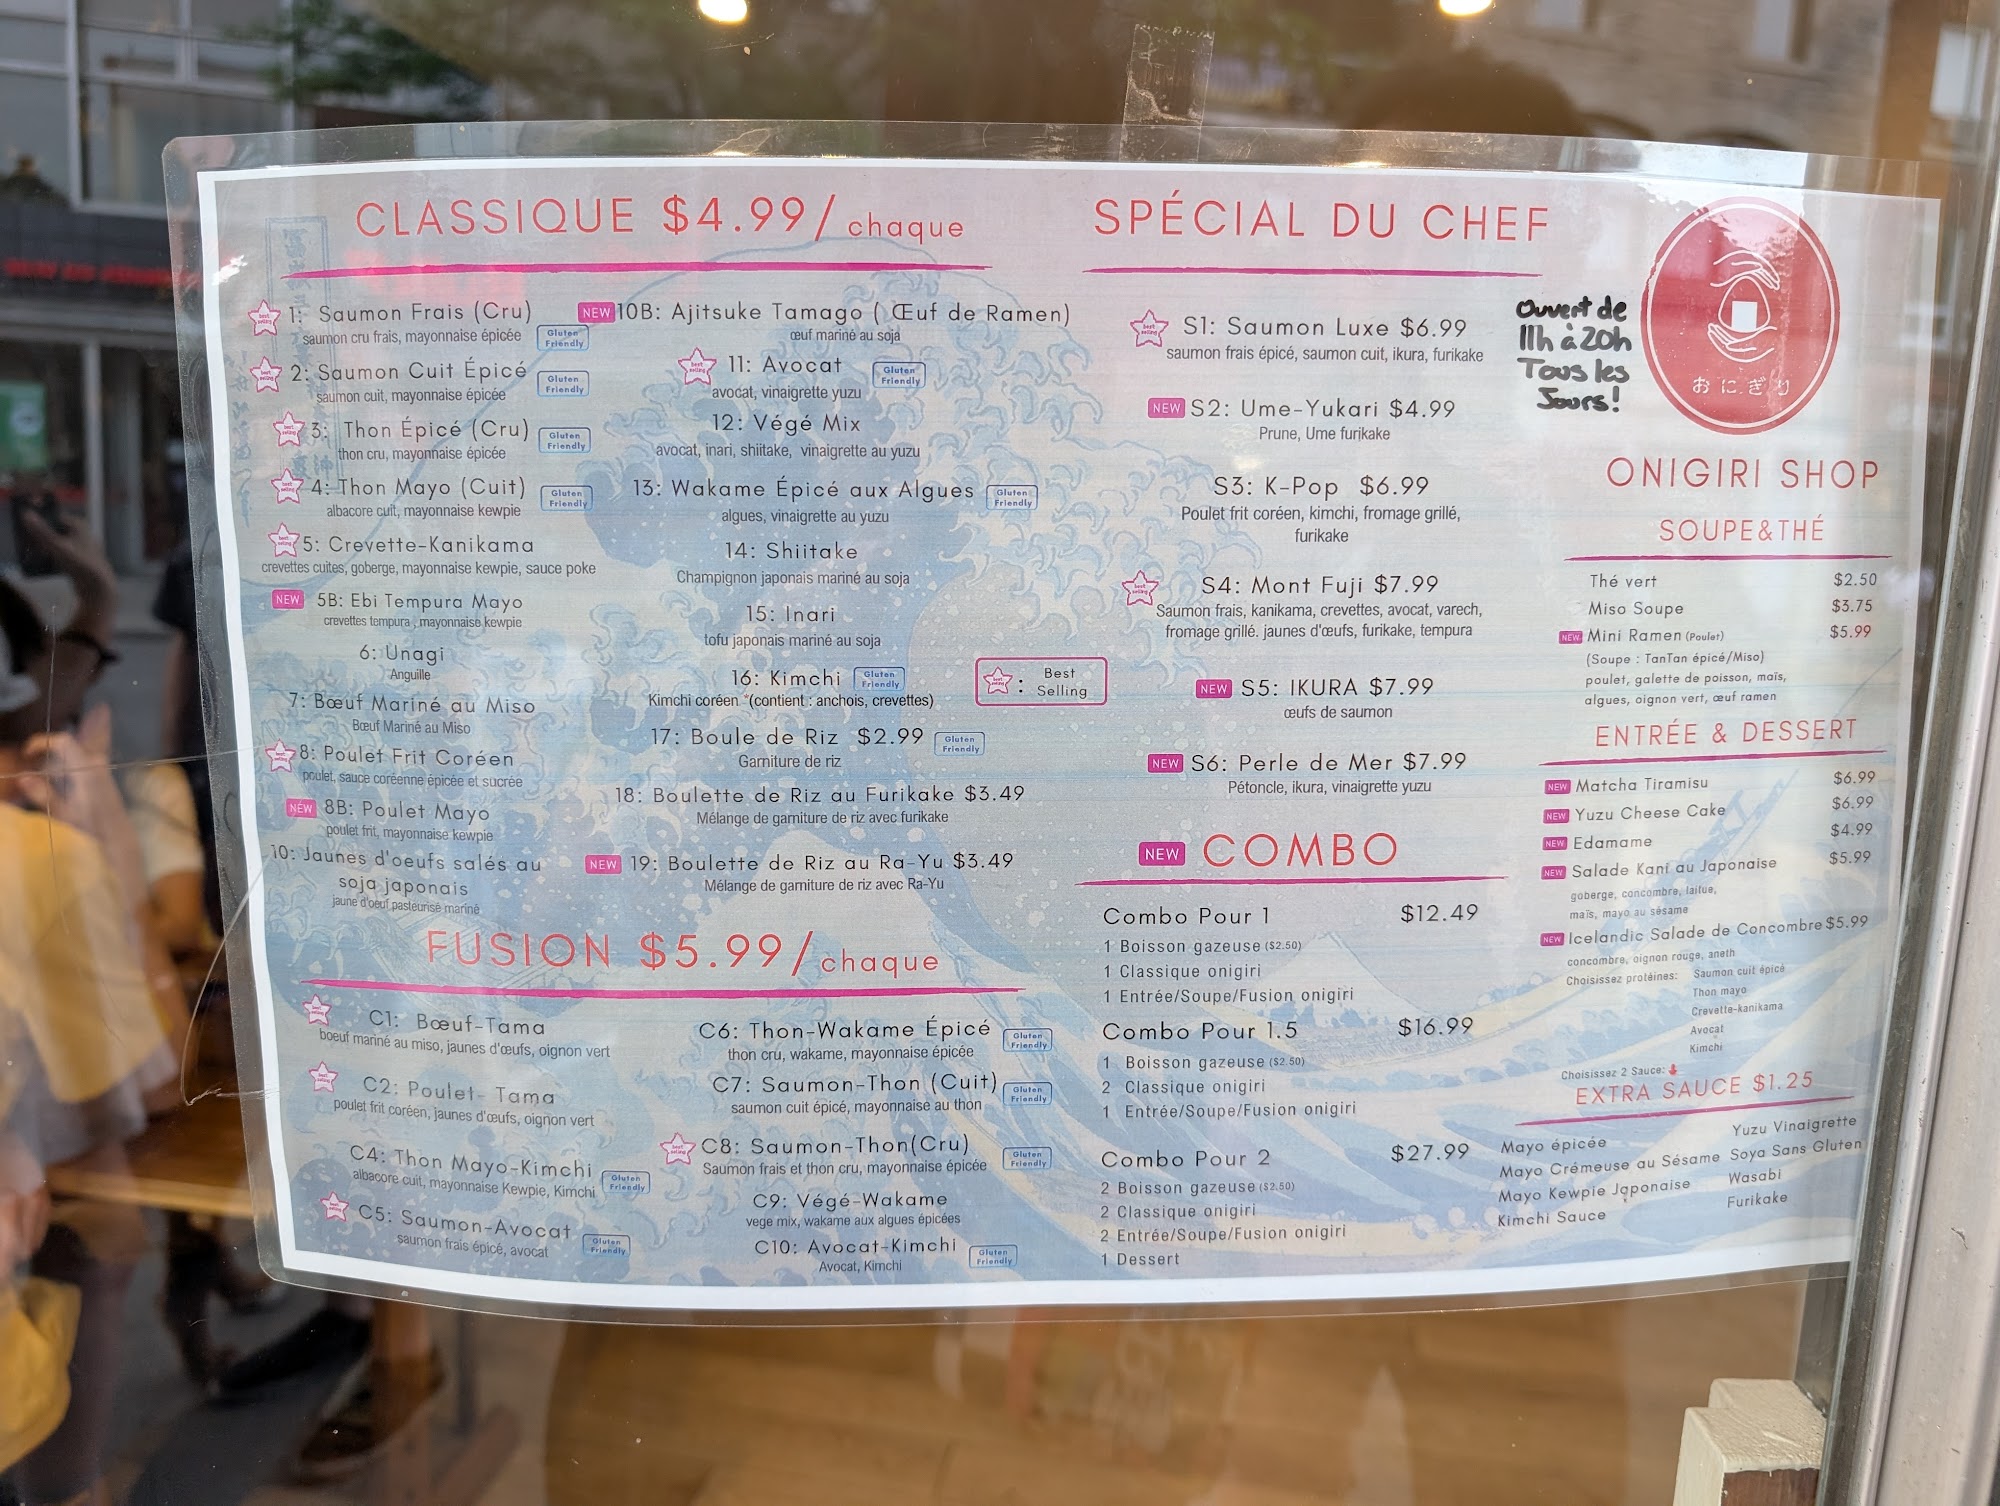 CLASSIQUE $4.99/ chaque
1: Saumon Frais (Cru)
saumon cru frais, mayonnaise épicée
Gluten Friendly
2: Saumon Cuit Épicé
saumon cuit, mayonnaise épicée
Gluten Friendly
3: Thon Épicé (Cru)
thon cru, mayonnaise épicée
Gluten Friendly
4: Thon Mayo (Cuit)
albacore cuit, mayonnaise kewpie
Gluten Friendly
5: Crevette-Kanikama
crevettes cuites, goberge, mayonnaise kewpie, sauce poke
NEW 5B: Ebi Tempura Mayo
crevettes tempura, mayonnaise kewpie
6: Unagi
Anguille
7: Bœuf Mariné au Miso
Bœuf Mariné au Miso
8: Poulet Frit Coréen
poulet, sauce coréenne épicée et sucrée
NEW 8B: Poulet Mayo
poulet frit, mayonnaise kewpie
10: Jaunes d'oeufs salés au
soja japonais
jaune d'oeuf pasteurisé mariné
NEW 10B: Ajitsuke Tamago ( Œuf de Ramen)
œuf mariné au soja
11: Avocat
avocat, vinaigrette yuzu
Gluten Friendly
12: Végé Mix
avocat, inari, shiitake, vinaigrette au yuzu
13: Wakame Épicé aux Algues
algues, vinaigrette au yuzu
Gluten Friendly
14: Shiitake
Champignon japonais mariné au soja
15: Inari
tofu japonais mariné au soja
16: Kimchi
Gluten Friendly
Kimchi coréen *(contient : anchois, crevettes)
17: Boule de Riz $2.99
Gluten Friendly
Garniture de riz
18: Boulette de Riz au Furikake $3.49
Mélange de garniture de riz avec furikake
NEW 19: Boulette de Riz au Ra-Yu $3.49
Mélange de garniture de riz avec Ra-Yu
: Best Selling
FUSION $5.99/ chaque
C1: Bœuf-Tama
boeuf mariné au miso, jaunes d'œufs, oignon vert
C2: Poulet- Tama
poulet frit coréen, jaunes d'œufs, oignon vert
C4: Thon Mayo-Kimchi
albacore cuit, mayonnaise Kewpie, Kimchi
Gluten Friendly
C5: Saumon-Avocat
saumon frais épicé, avocat
Gluten Friendly
C6: Thon-Wakame Épicé
thon cru, wakame, mayonnaise épicée
Gluten Friendly
C7: Saumon-Thon (Cuit)
saumon cuit épicé, mayonnaise au thon
Gluten Friendly
C8: Saumon-Thon(Cru)
Saumon frais et thon cru, mayonnaise épicée
Gluten Friendly
C9: Végé-Wakame
vege mix, wakame aux algues épicées
C10: Avocat-Kimchi
Avocat, Kimchi
Gluten Friendly
SPÉCIAL DU CHEF
S1: Saumon Luxe $6.99
saumon frais épicé, saumon cuit, ikura, furikake
NEW S2: Ume-Yukari $4.99
Prune, Ume furikake
S3: K-Pop $6.99
Poulet frit coréen, kimchi, fromage grillé,
furikake
S4: Mont Fuji $7.99
Saumon frais, kanikama, crevettes, avocat, varech,
fromage grillé. jaunes d'œufs, furikake, tempura
NEW S5: IKURA $7.99
œufs de saumon
NEW S6: Perle de Mer $7.99
Pétoncle, ikura, vinaigrette yuzu
NEW COMBO
Combo Pour 1 $12.49
1 Boisson gazeuse ($2.50)
1 Classique onigiri
1 Entrée/Soupe/Fusion onigiri
Combo Pour 1.5 $16.99
1 Boisson gazeuse ($2.50)
2 Classique onigiri
1 Entrée/Soupe/Fusion onigiri
Combo Pour 2 $27.99
2 Boisson gazeuse ($2.50)
2 Classique onigiri
2 Entrée/Soupe/Fusion onigiri
1 Dessert
Ouvert de
11h à 20h
Tous les
Jours!
おにぎり
ONIGIRI SHOP
SOUPE&THÉ
Thé vert $2.50
Miso Soupe $3.75
NEW Mini Ramen (Poulet) $5.99
(Soupe : TanTan épicé/Miso)
poulet, galette de poisson, maïs,
algues, oignon vert, œuf ramen
ENTRÉE & DESSERT
NEW Matcha Tiramisu $6.99
NEW Yuzu Cheese Cake $6.99
NEW Edamame $4.99
NEW Salade Kani au Japonaise $5.99
goberge, concombre, laitue,
maïs, mayo au sésame
NEW Icelandic Salade de Concombre $5.99
concombre, oignon rouge, aneth
Choisissez protéines: Saumon cuit épicé
Thon mayo
Crevette-kanikama
Avocat
Kimchi
Choisissez 2 Sauce:
EXTRA SAUCE $1.25
Mayo épicée
Mayo Crémeuse au Sésame
Mayo Kewpie Japonaise
Kimchi Sauce
Yuzu Vinaigrette
Soya Sans Gluten
Wasabi
Furikake